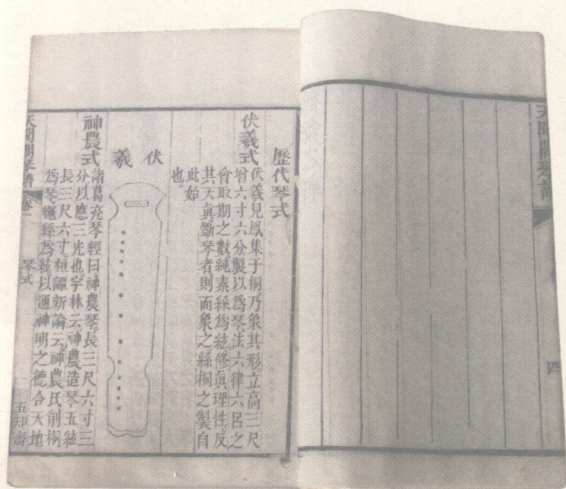 天聞閣琴譜
四
歷代琴式
伏羲式 伏羲見鳳集于桐乃象其形立高三尺
增六寸六分製以爲琴法六律六呂之
會取期之數純素絲爲絃修眞理性反
其天眞斵琴者則而象之絲桐之製自
此始
也
伏羲
神農式 諸葛亮琴經曰神農琴長三尺六寸三
分以應三光也宇林云神農造琴五絃
長三尺六寸桓譚新論云神農氏削桐
爲琴繩絲爲絃以通神明之德合天地
天聞閣琴譜 卷一 琴式 五知齋